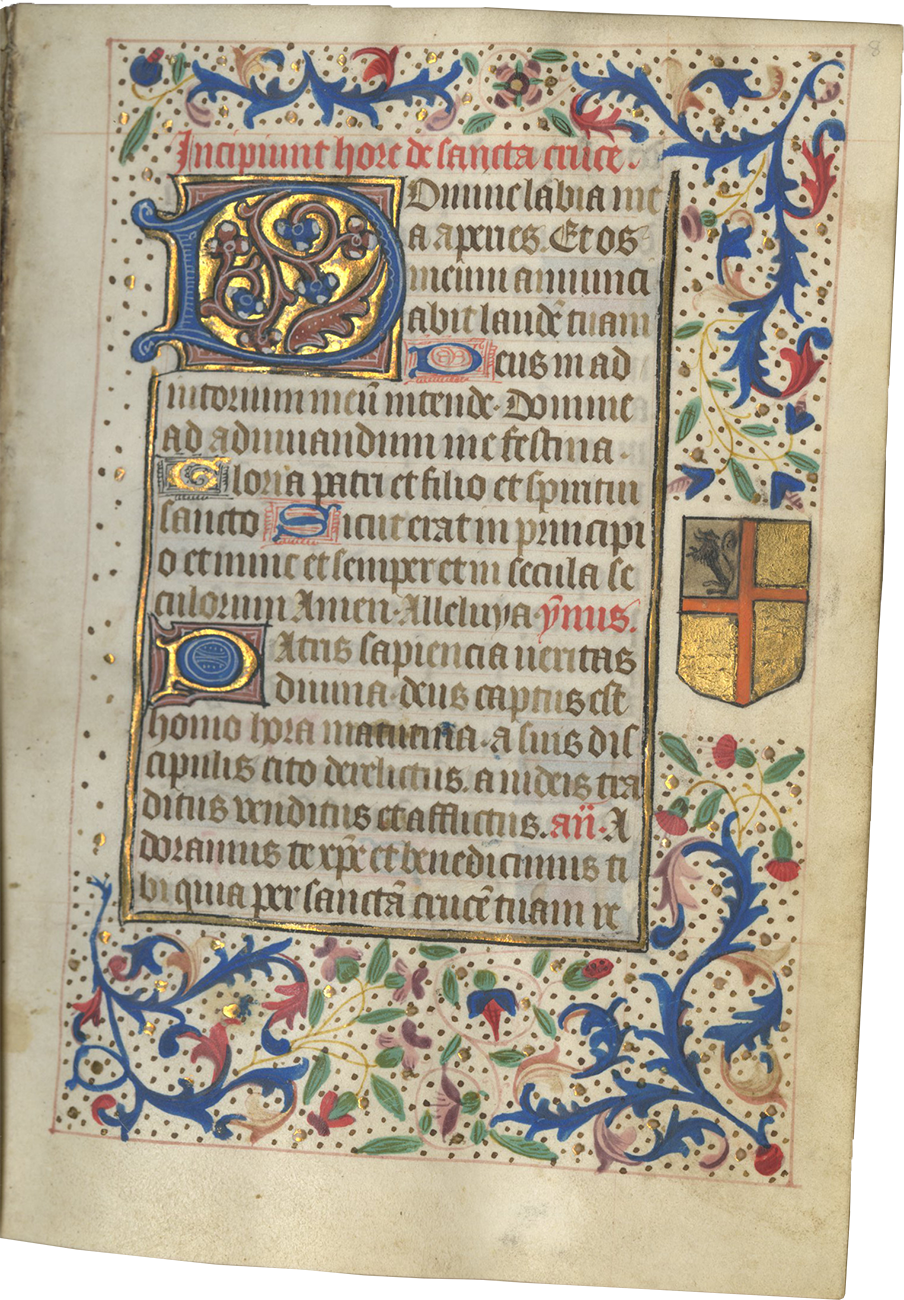 8
Incipiunt hore de sancta cruce.
Domine labia me
a aperies. Et os
meum annunci
abit laudē tuam
Deus in ad
iutorium meū intende. Domine
ad adiuuandum me festina.
Gloria patri et filio et spiritui
sancto Sicut erat in principi
o et nunc et semper et in secula se
culorum Amen. Alleluya ẏmus.
Patris sapiencia ueritas
diuina. deus captus est
homo hora matutina. a suis dis
cipulis cito derelictus. a iudeis tra
ditus venditus et afflictus. añ. A
doramus te xp̄e et benedicimus ti
bi quia per sanctā crucē tuam re